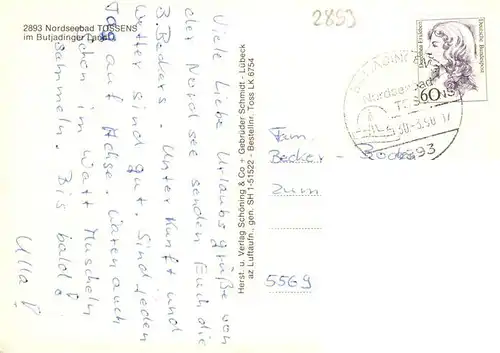 2893 Nordseebad TOSSENS
im Butjadinger Land
2893
Viele Liebe Urlaubsgrüße von
der Nordsee senden Euch die
3 Beckers. Unterkunft und
Wetter sind gut. Sind jeden
Tag auf Achse. Waren auch
schon im Watt Muscheln
sammeln. Bis bald!
Ulla
Herst. u. Verlag Schöning & Co + Gebrüder Schmidt - Lübeck
az Luftaufn., gen. SH 1-51522 - Bestellnr. Toss LK 6754
Deutsche Bundespost
60
BUTJADINGEN
Nordseebad
TOSSENS
30-3.90-17
2893
Fam.
Becker -
Zum
5569